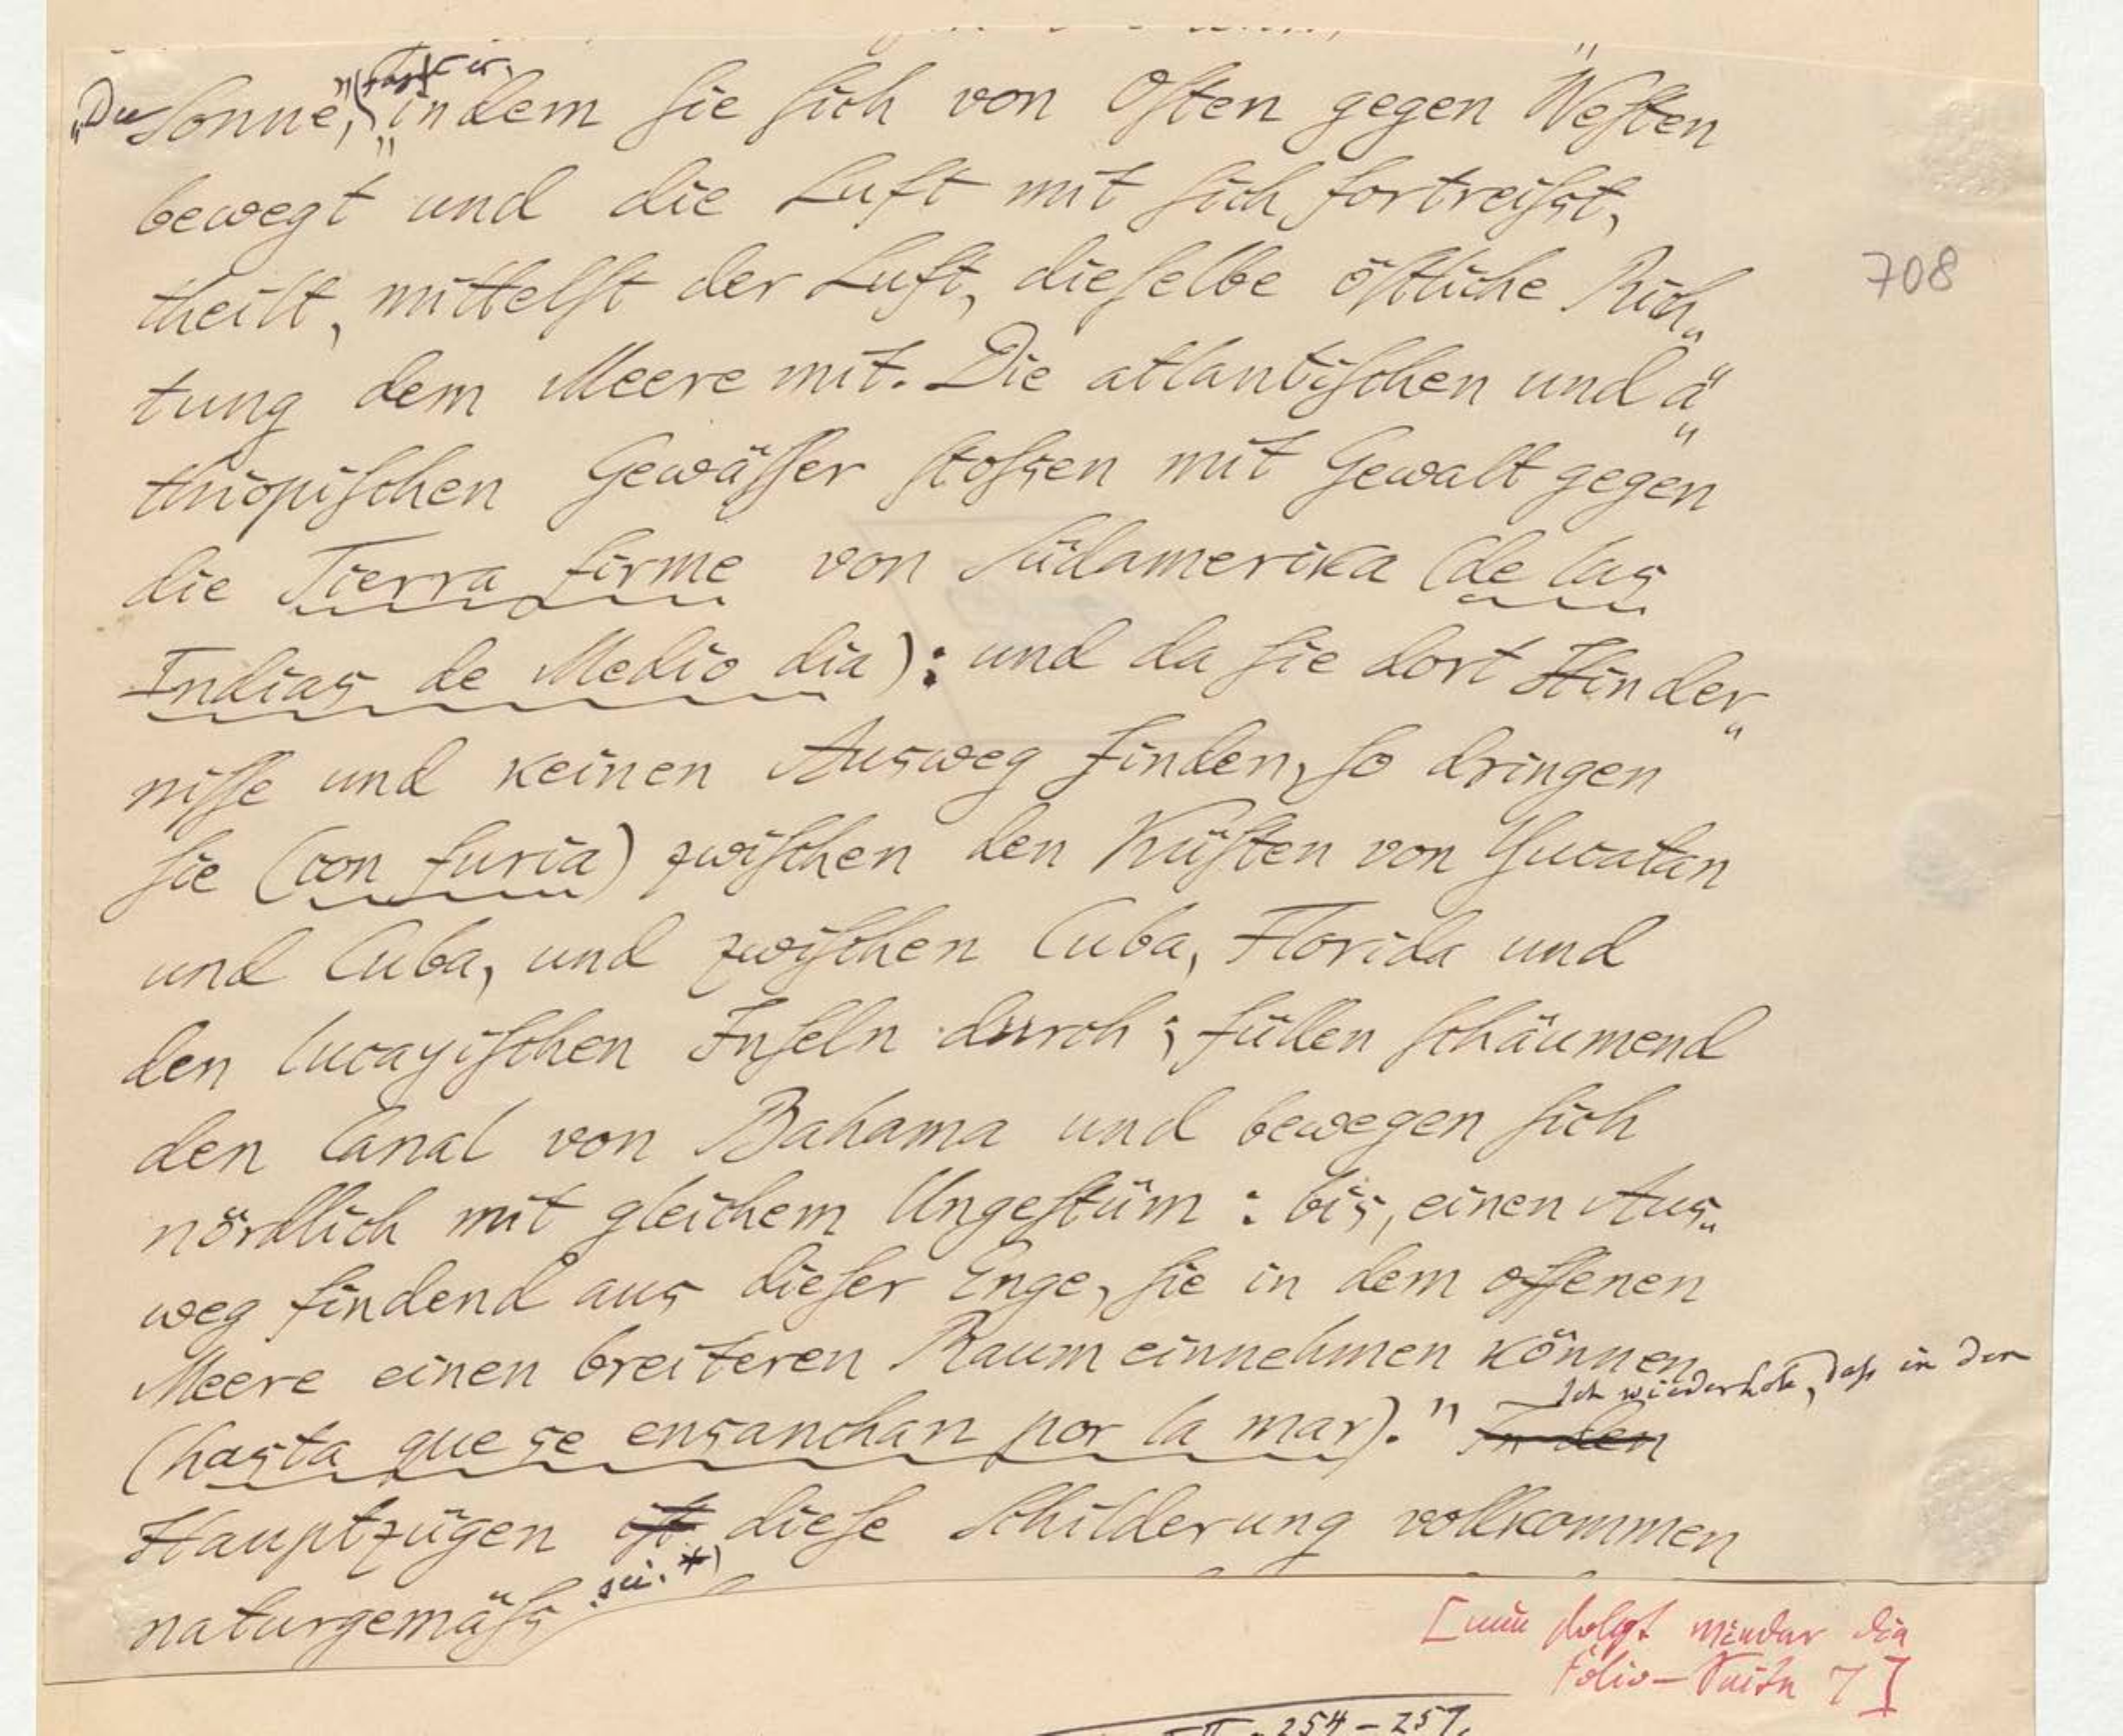 „Die Sonne," (sagt er, „indem sie sich von Osten gegen Westen
bewegt und die Luft mit sich fortreißt,
theilt, mittelst der Luft, dieselbe östliche Rich„
tung dem Meere mit. Die atlantischen und ä„
thiopischen Gewässer stoßen mit Gewalt gegen
die Tierra firme von Südamerika (de las
Indias de Medio dia): und da sie dort Hinder„
nisse und keinen Ausweg finden, so dringen
sie (con furia) zwischen den Küsten von Yucatan
und Cuba, und zwischen Cuba, Florida und
den lucayischen Inseln durch; füllen schäumend
den Canal von Bahama und bewegen sich
nördlich mit gleichem Ungestüm: bis, einen Aus„
weg findend aus dieser Enge, sie in dem offenen
Meere einen breiteren Raum einnehmen können
(hasta que se ensanchan por la mar)." In den Ich wiederhole, daß in den
Hauptzügen ist diese Schilderung vollkommen
naturgemäß sei.*)
708
[nun folgt wieder die
Folio-Seite 7]
II. 254-257.